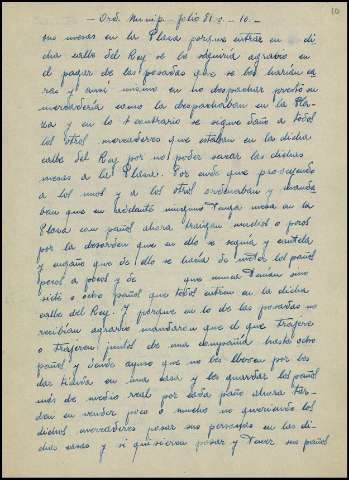 10
- Ord. Municip. folio 81 v. - 10. -
sus mesas en la Plaza porque entrar en di
cha calle del Rey se les seguiria agravio en
el pagar de las posadas que se les harian ca
ras y ansi mismo en no despachar presto su
mercaderia como la despachaban en la Pla-
za y en lo contrario se sigue daño a todos
los otros mercaderes que estaban en la dicha
calle del Rey por no poder sacar las dichas
mesas a la Plaza. Por ende que proveyendo
a los unos y a los otros ordenaban y manda
ban que en adelante ninguno tenga mesa en la
Plaza con paños ahora traigan muchos o pocos
por la desorden que en ello se seguia y cautela
y engaño que de ello se hacia de meter los paños
pocos a pocos y de que nunca tenian sino
siete o ocho paños que todos entren en la dicha
calle del Rey. Y porque en lo de las posadas no
reciban agravio mandaron que el que trajere
o trajeren juntos de una compañia hasta ocho
paños y dende ayuso que no les lleven por les
dar tienda en una casa y les guardar los paños
más de medio real por cada paño ahora tar-
den en vender poco o mucho no queriendo los
dichos mercaderes posar sus personas en las di-
chas casas y si quisieren posar y tener sus paños